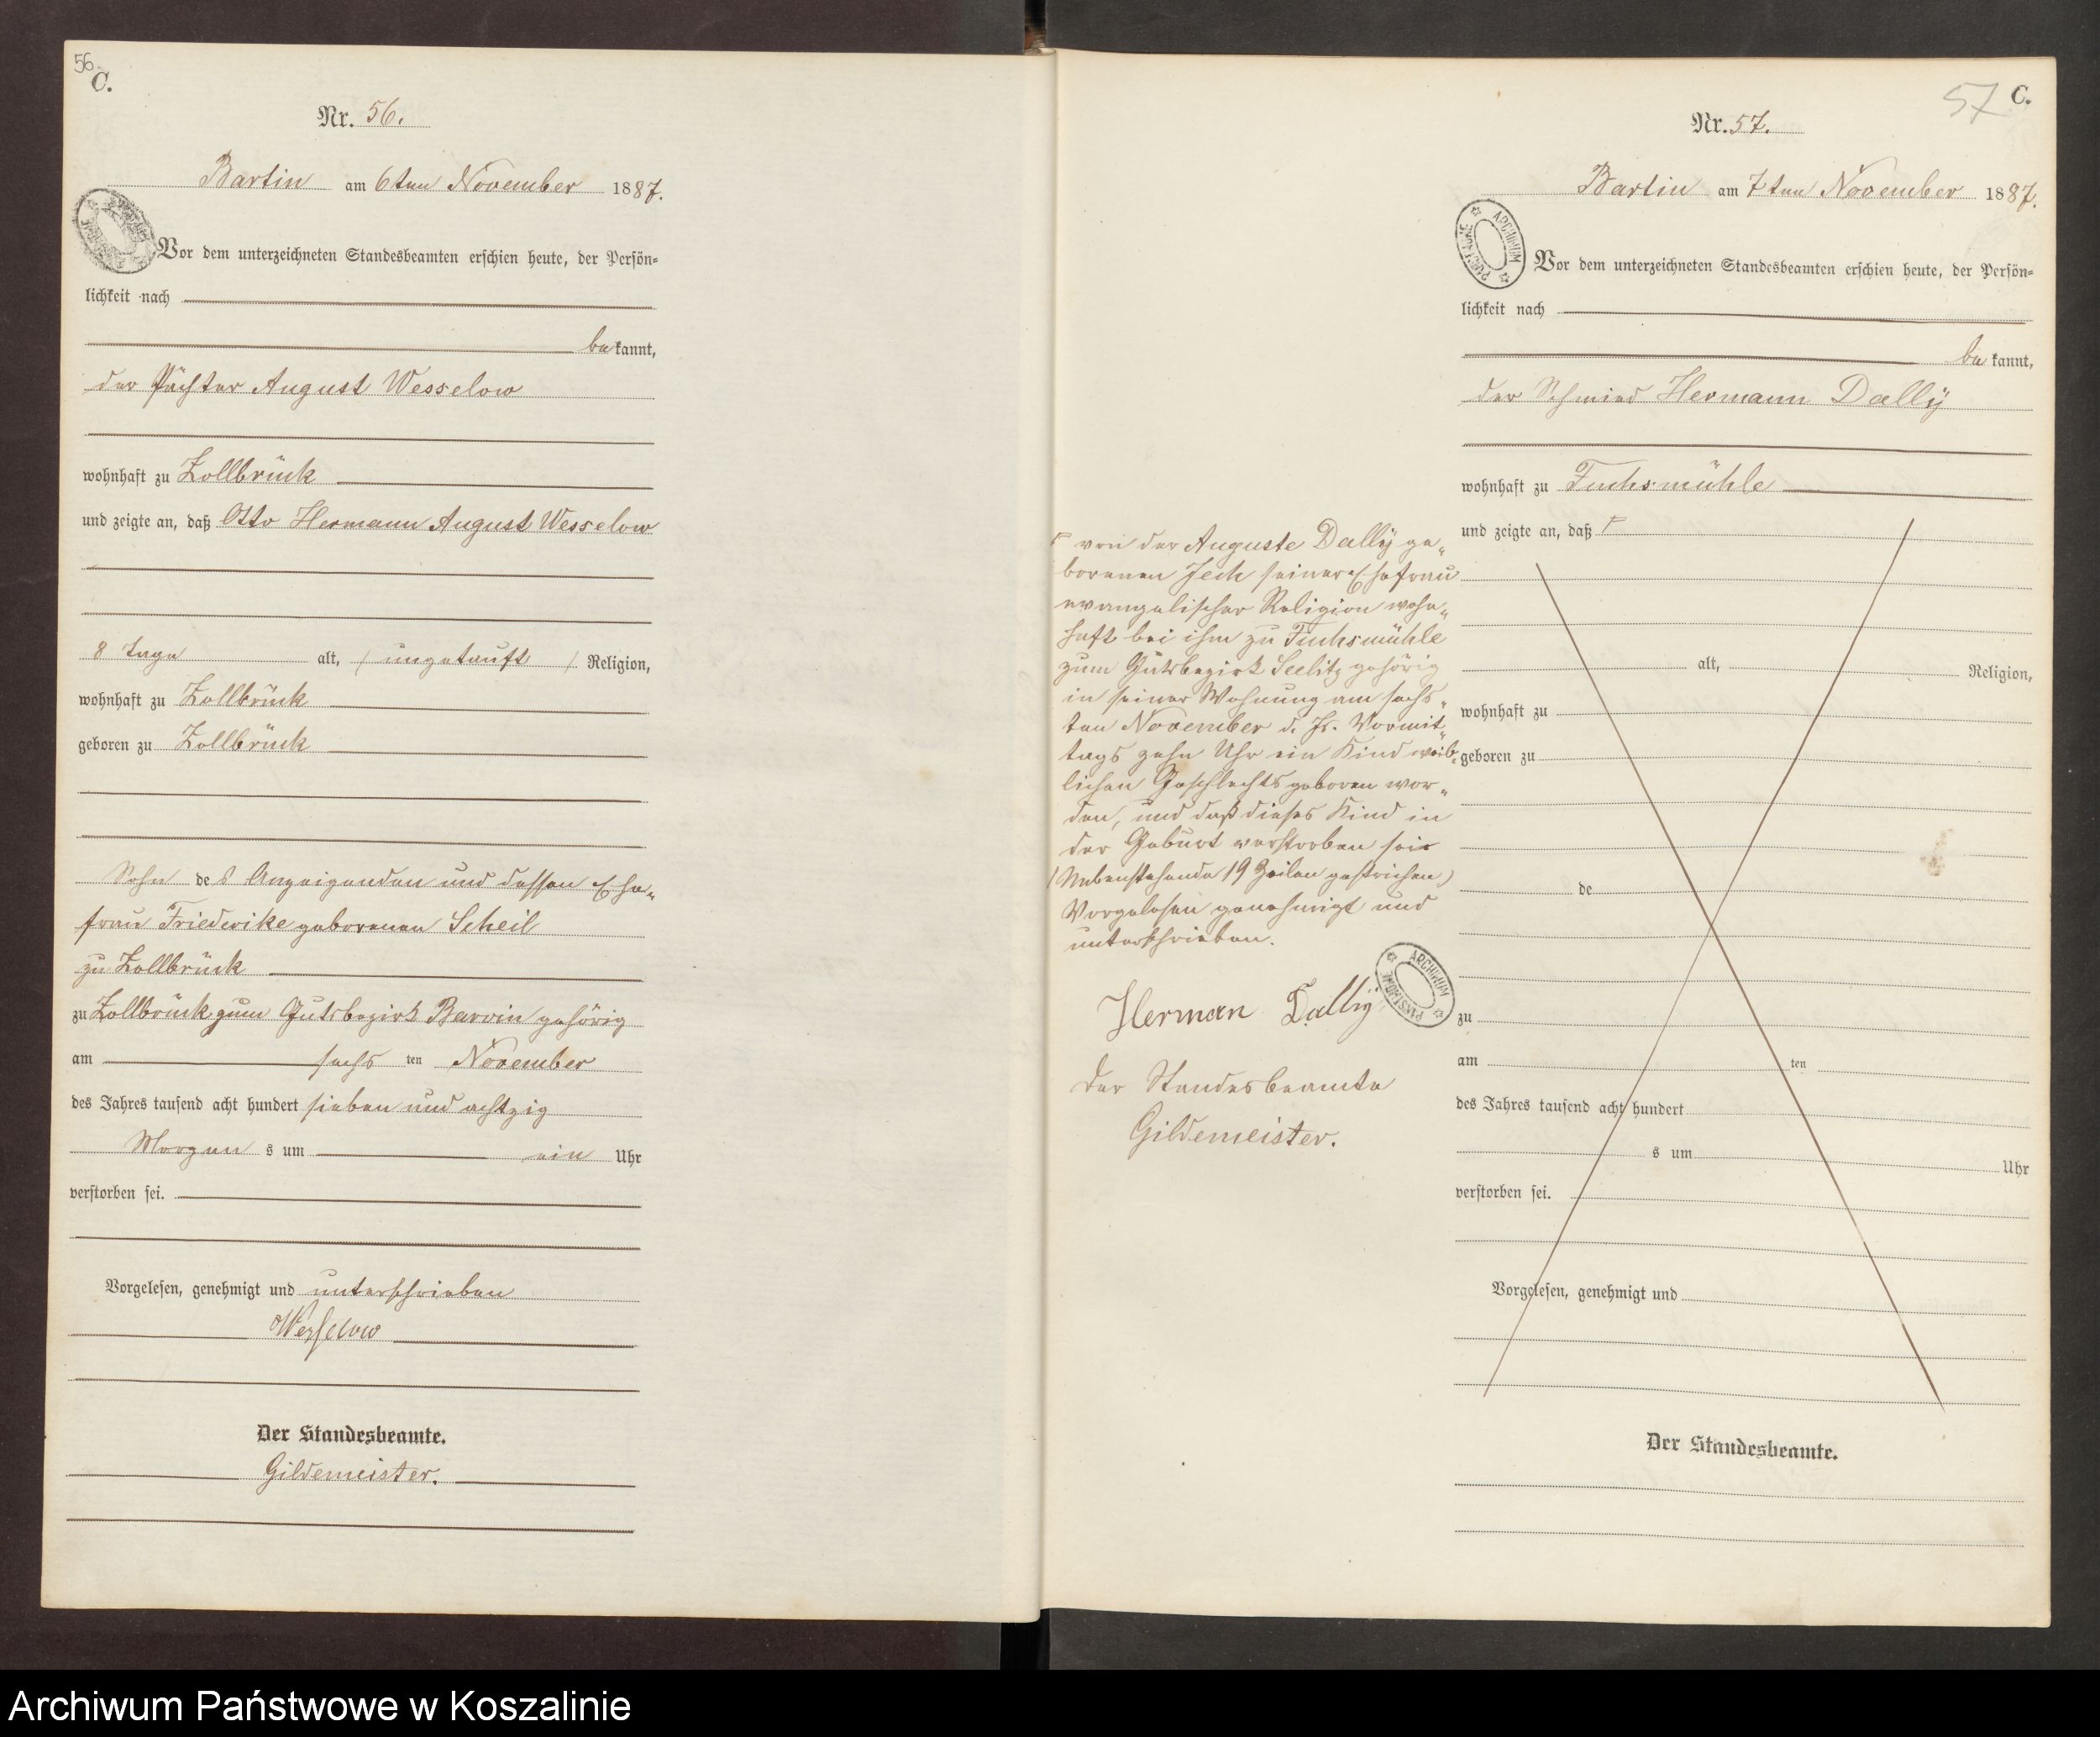 56
C.
Nr. 56.
Bartin am 6ten November 1887.
Vor dem unterzeichneten Standesbeamten erschien heute, der Persön=
lichkeit nach
bekannt,
der Pächter August Wesselow
wohnhaft zu Zollbrück
und zeigte an, daß Otto Hermann August Wesselow
8 Tage alt, (ungetauft) Religion,
wohnhaft zu Zollbrück
geboren zu Zollbrück
Sohn des Anzeigenden und dessen Ehe„
frau Friederike geborenen Scheil
zu Zollbrück
zu Zollbrück zum Gutsbezirk Barvin gehörig
am sechs ten November
des Jahres tausend acht hundert sieben und achtzig
Morgens um ein Uhr
verstorben sei.
Vorgelesen, genehmigt und unterschrieben
Wesselow
Der Standesbeamte.
Gildemeister.
57 C.
Nr. 57.
Bartin am 7ten November 1887.
ARCHIWUM PAŃSTWOWE
Vor dem unterzeichneten Standesbeamten erschien heute, der Persön=
lichkeit nach
bekannt,
der Schmied Hermann Dallÿ
wohnhaft zu Fuchsmühle
und zeigte an, daß ┌
┌ von der Auguste Dallÿ ge„
borenen Jech seiner Ehefrau
evangelischer Religion wohn„
haft bei ihm zu Fuchsmühle
zum Gutsbezirk Seelitz gehörig
in seiner Wohnung am sechs„
ten November d. Js. Vormit„
tags zehn Uhr ein Kind weib„
lichen Geschlechts geboren wor„
den, und daß dieses Kind in
der Geburt verstorben sei
(Nebenstehende 19 Zeilen gestrichen)
Vorgelesen genehmigt und
unterschrieben.
Herman Dallÿ
ARCHIWUM PAŃSTWOWE
Der Standesbeamte
Gildemeister.
alt, Religion,
wohnhaft zu
geboren zu
de
zu
am ten
des Jahres tausend acht hundert
s um Uhr
verstorben sei.
Vorgelesen, genehmigt und
Der Standesbeamte.
Archiwum Państwowe w Koszalinie